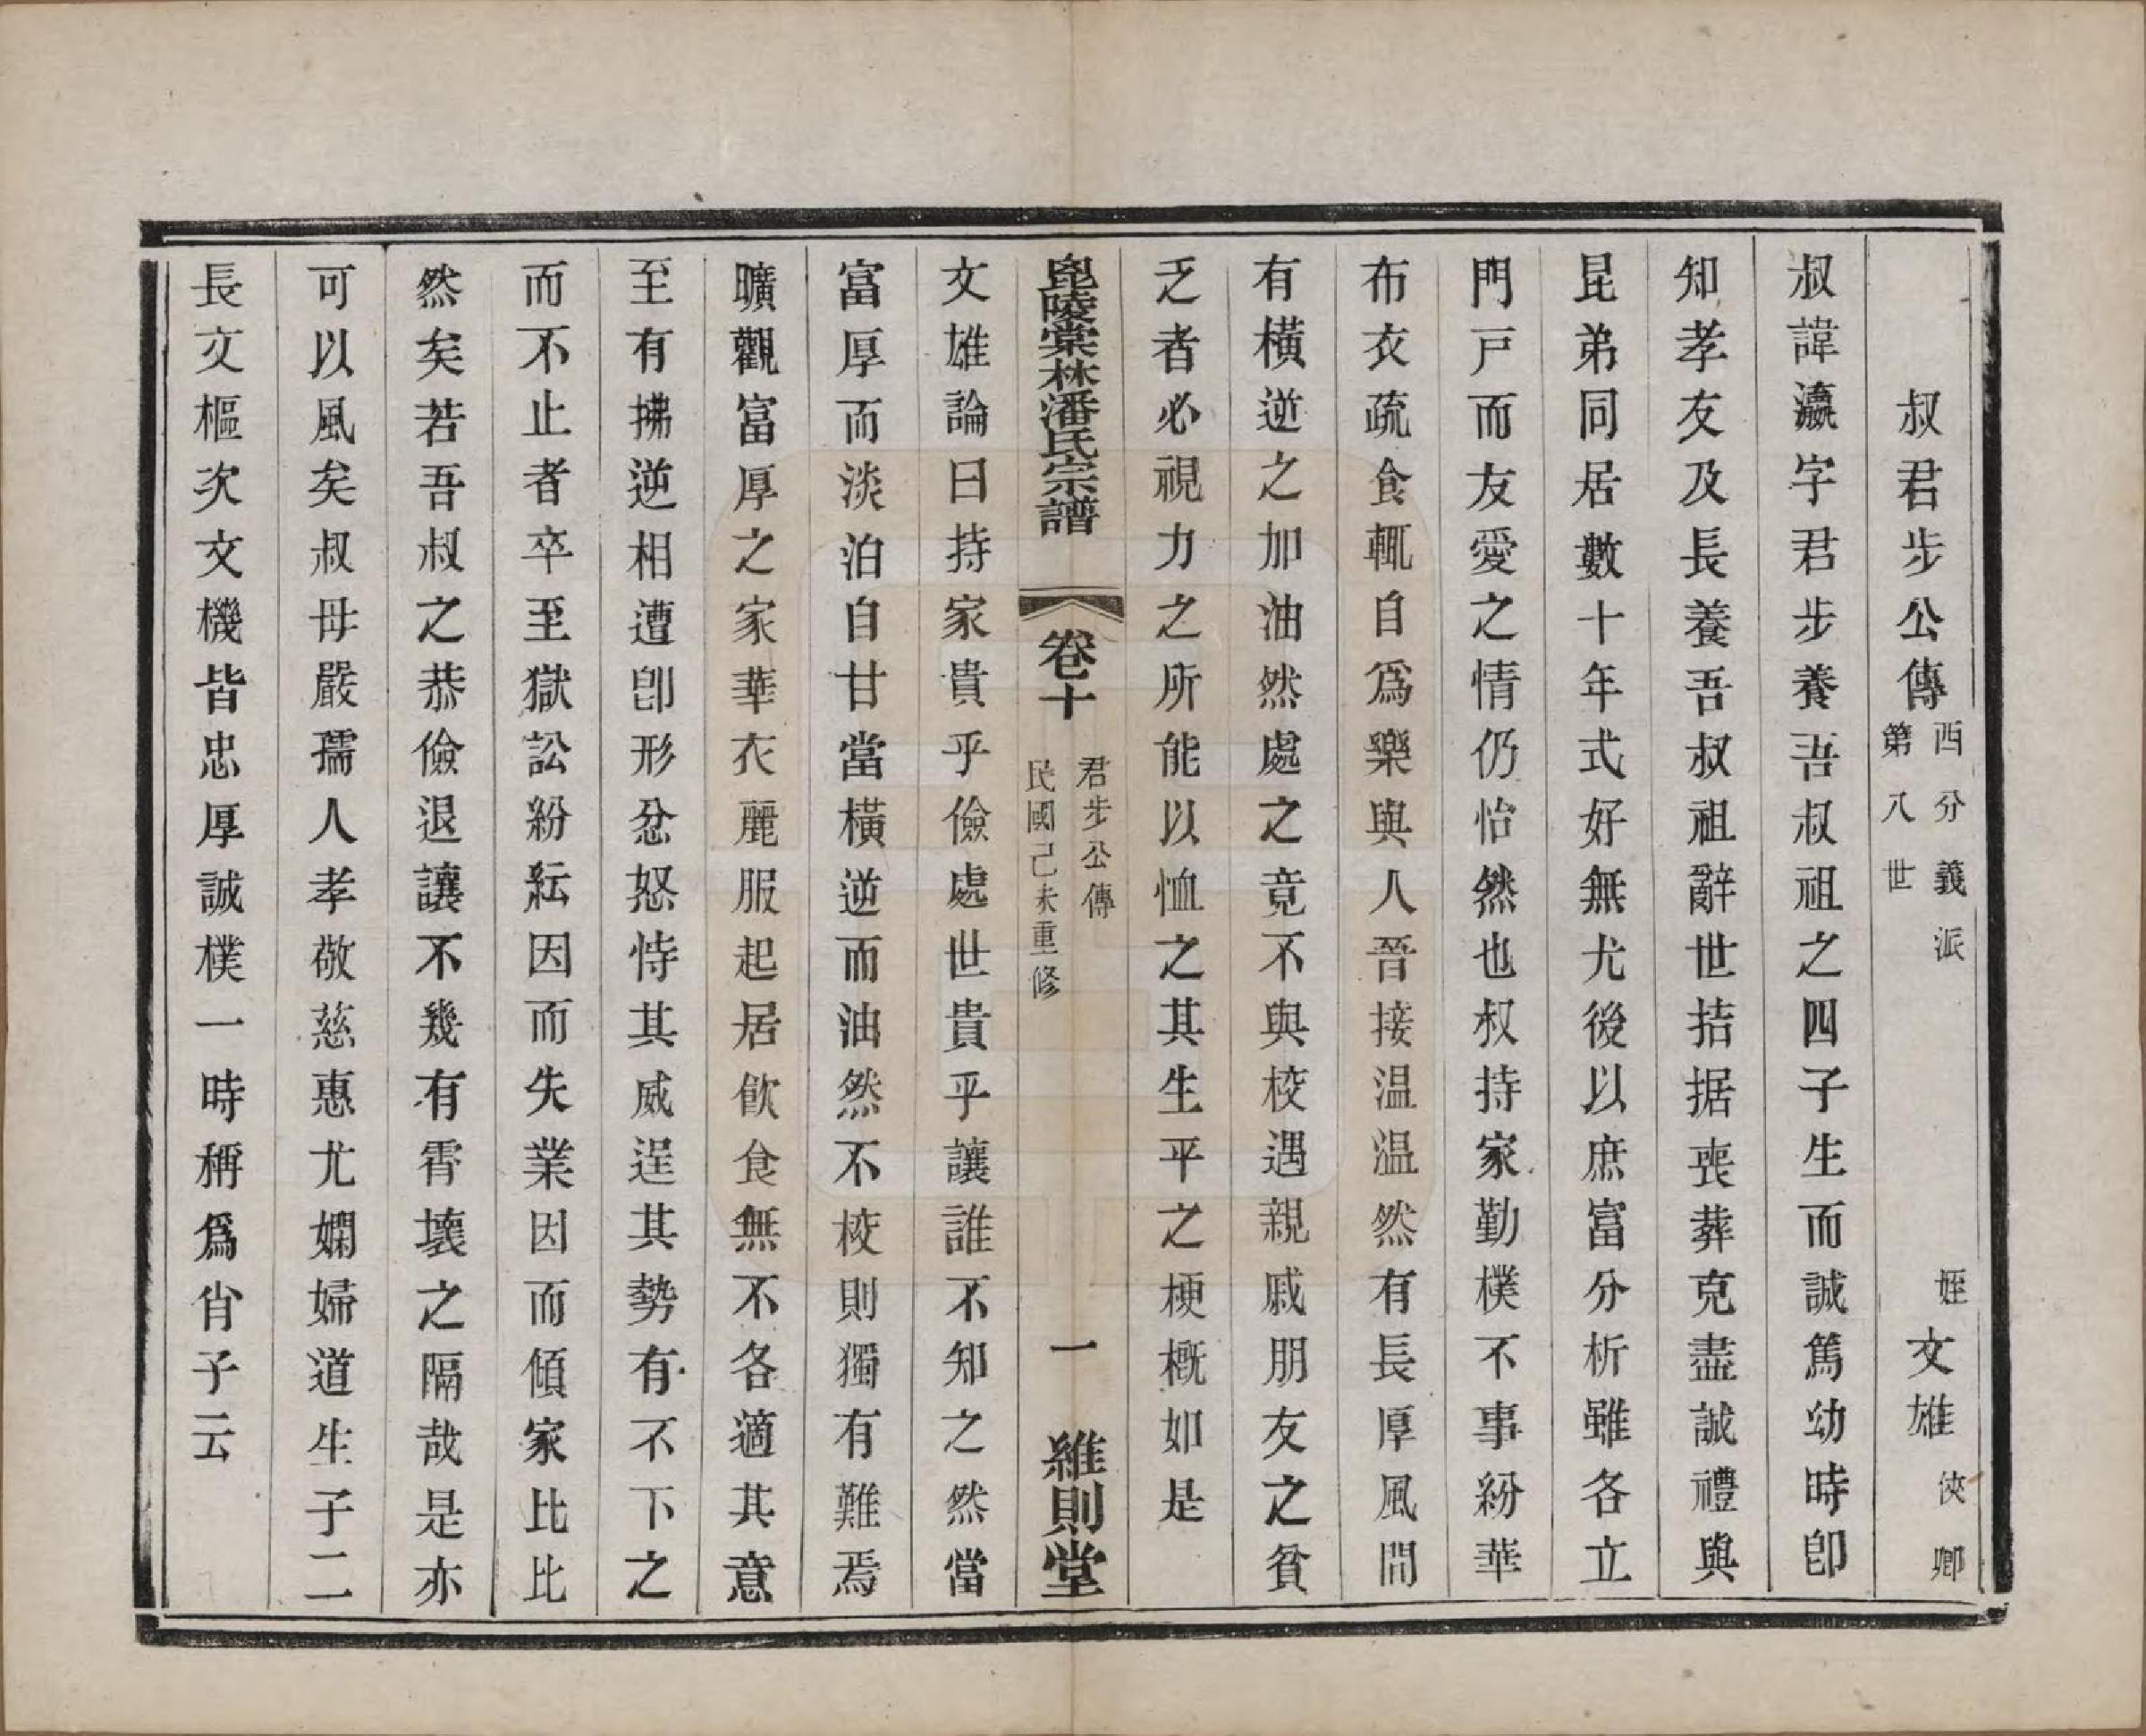 叔君步公傳 西分義派第八世 姪文雄俠卿
叔諱瀛字君步養吾叔祖之四子生而誠篤幼時卽
知孝友及長養吾叔祖辭世拮据喪葬克盡誠禮與
昆弟同居數十年式好無尤後以庶富分析雖各立
門戸而友愛之情仍怡然也叔持家勤樸不事紛華
布衣疏食輒自爲樂與人晉接温温然有長厚風間
有橫逆之加油然處之竟不與校遇親戚朋友之貧
乏者必視力之所能以恤之其生平之梗概如是
毘陵棠林潘氏宗譜 卷十 君步公傳 民國己未重修 一 維則堂
文雄論曰持家貴乎儉處世貴乎讓誰不知之然當
富厚而淡泊自甘當橫逆而油然不校則獨有難焉
曠觀富厚之家華衣麗服起居飮食無不各適其意
至有拂逆相遭卽形忿怒恃其威逞其勢有不下之
而不止者卒至獄訟紛紜因而失業因而傾家比比
然矣若吾叔之恭儉退讓不幾有霄壤之隔哉是亦
可以風矣叔母嚴孺人孝敬慈惠尤嫻婦道生子二
長文樞次文機皆忠厚誠樸一時稱爲肖子云